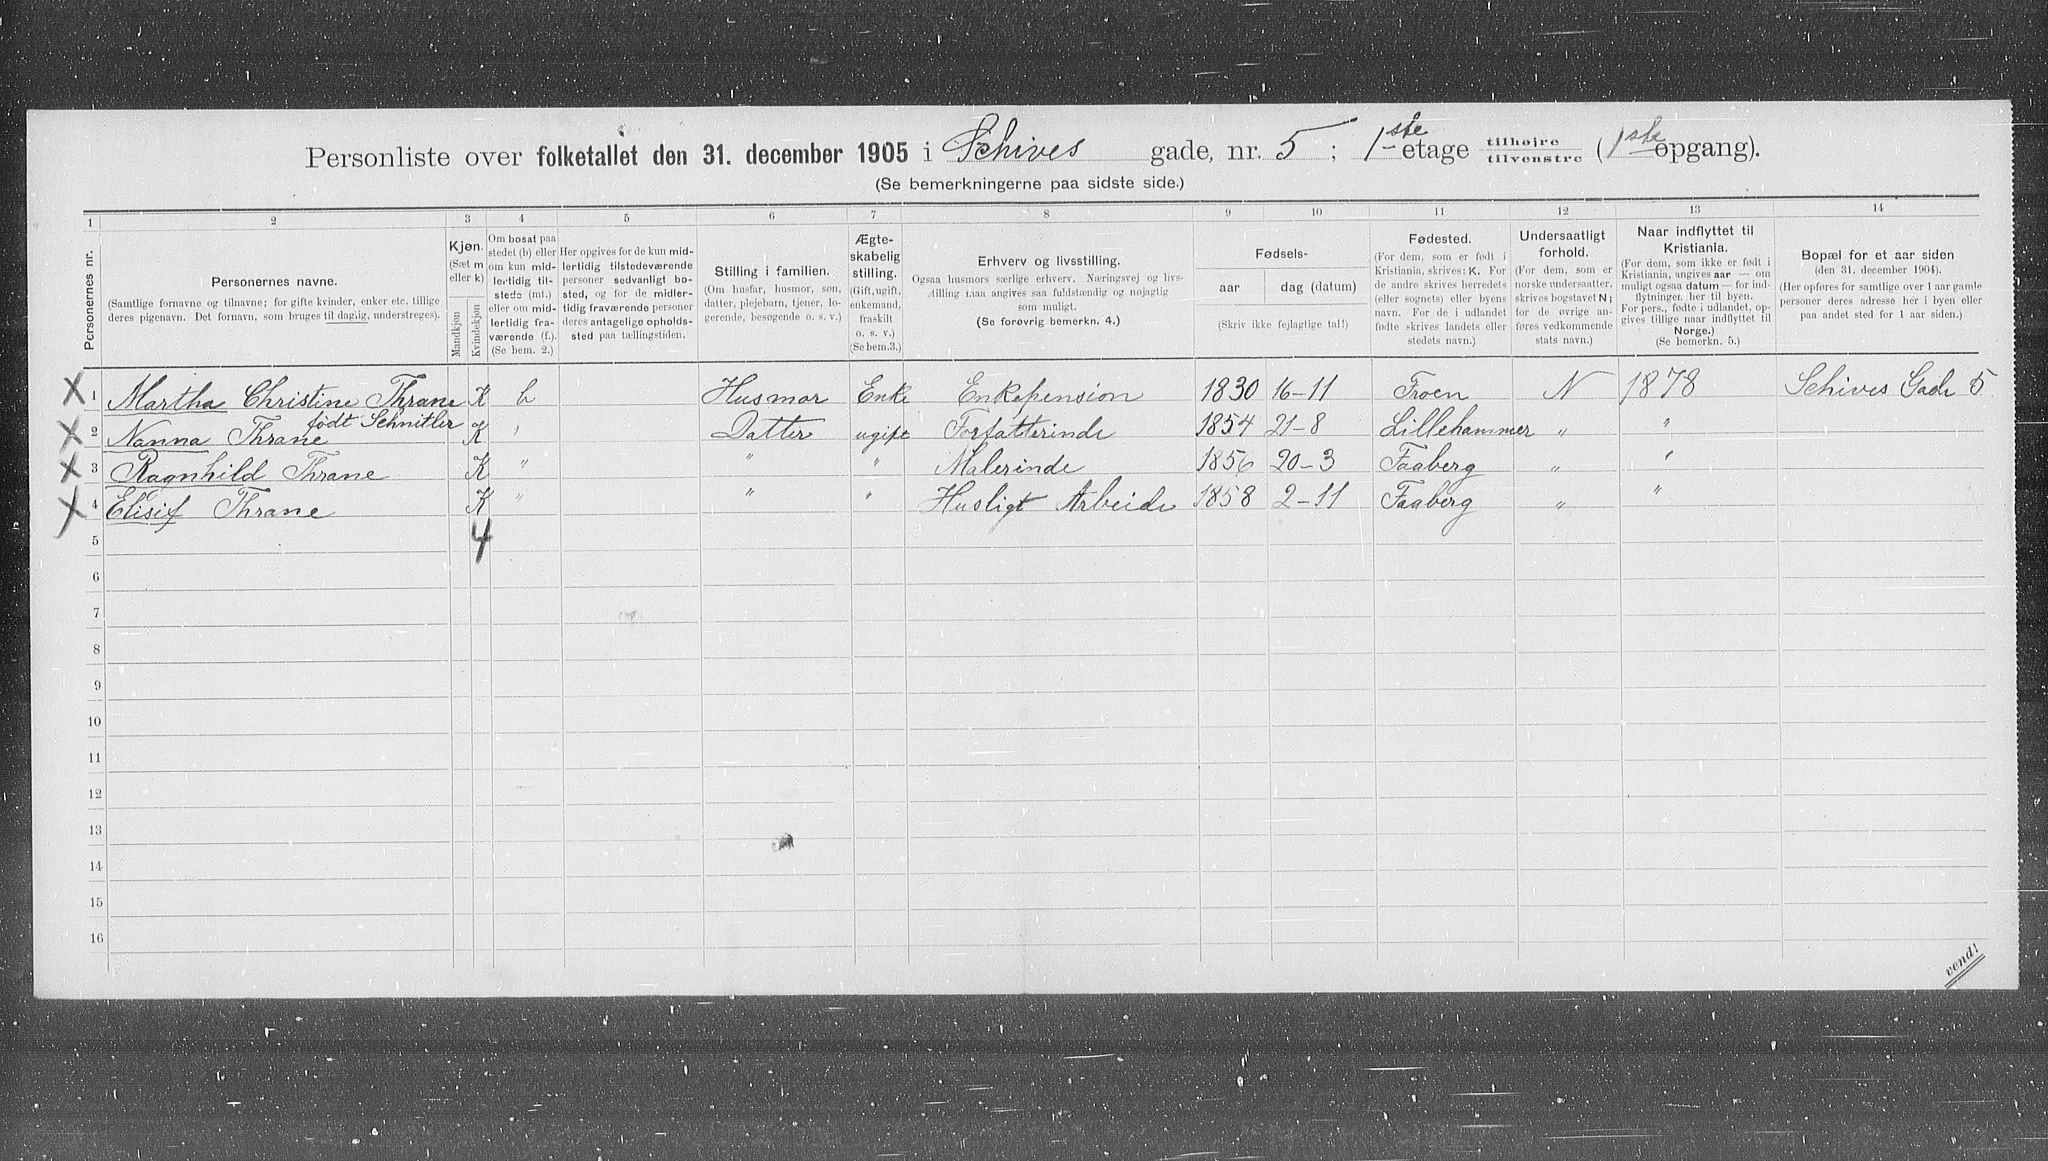 Personliste over folketallet den 31. december 1905 i Schives gade, nr. 5; 1ste etage tilhøjre tilvenstre (1ste opgang).
(Se bemerkningerne paa sidste side.)
1 2 3 4 5 6 7 8 9 10 11 12 13 14
Personernes nr.
Personernes navne.
(Samtlige fornavne og tilnavne; for gifte kvinder, enker etc. tillige
deres pigenavn. Det fornavn, som bruges til daglig, understreges).
Kjøn.
(Sæt m
eller k)
Mandkjøn
Kvindekjøn
Om bosat paa
stedet (b) eller
om kun mid-
lertidig til-
stede (mt.)
eller om mid-
lertidig fra-
værende (f.).
(Se bem. 2.)
Her opgives for de kun mid-
lertidig tilstedeværende
personer sedvanlig bo-
sted, og for de midler-
tidig fraværende personer
deres antagelige opholds-
sted paa tællingstiden.
Stilling i familien.
(Om husfar, husmor, søn,
datter, plejebarn, tjener, lo-
gerende, besøgende o. s. v.)
Ægte-
skabelig
stilling.
(Gift, ugift,
enkemand,
fraskilt
o. s. v.)
(Se bem.3.)
Erhverv og livsstilling.
Ogsaa husmors særlige erhverv. Næringsvej og livs-
stilling maa angives saa fuldstændig og nøjagtig
som muligt.
(Se forøvrig bemerkn. 4.)
Fødsels-
aar dag (datum)
(Skriv ikke fejlagtige tal!)
Fødested.
(For dem, som er født i
Kristiania, skrives: K. For
de andre skrives herredets
(eller sognets) eller byens
navn. For de i udlandet
fødte skrives landets eller
stedets navn.)
Undersaatligt
forhold.
(For dem, som er
norske undersaatter,
skrives bogstavet N;
for de øvrige an-
føres vedkommende
stats navn.)
Naar indflyttet til
Kristiania.
(For dem, som ikke er født i
Kristiania, angives aar — om
muligt ogsaa datum — for ind-
flytninger her til byen.
For pers., fødte i udlandet, op-
gives tillige naar indflyttet til
Norge.)
(Se bemerkn. 5.)
Bopæl for et aar siden
(den 31. december 1904).
(Her opføres for samtlige over 1 aar gamle
personer deres adresse her i byen eller
paa andet sted for 1 aar siden.)
X 1 Martha Christine Thrane K b Husmor Enke Enkepension 1830 16-11 Troen N 1878 Schives Gade 5
født Schnitler
X 2 Nanna Thrane K " Datter ugift Forfatterinde 1854 21-8 Lillehammer " "
X 3 Ragnhild Thrane K " " " Malerinde 1856 20-3 Faaberg " "
X 4 Elisif Thrane K " " " Husligt Arbeide 1858 2-11 Faaberg " "
4
5
6
7
8
9
10
11
12
13
14
15
16
vend!